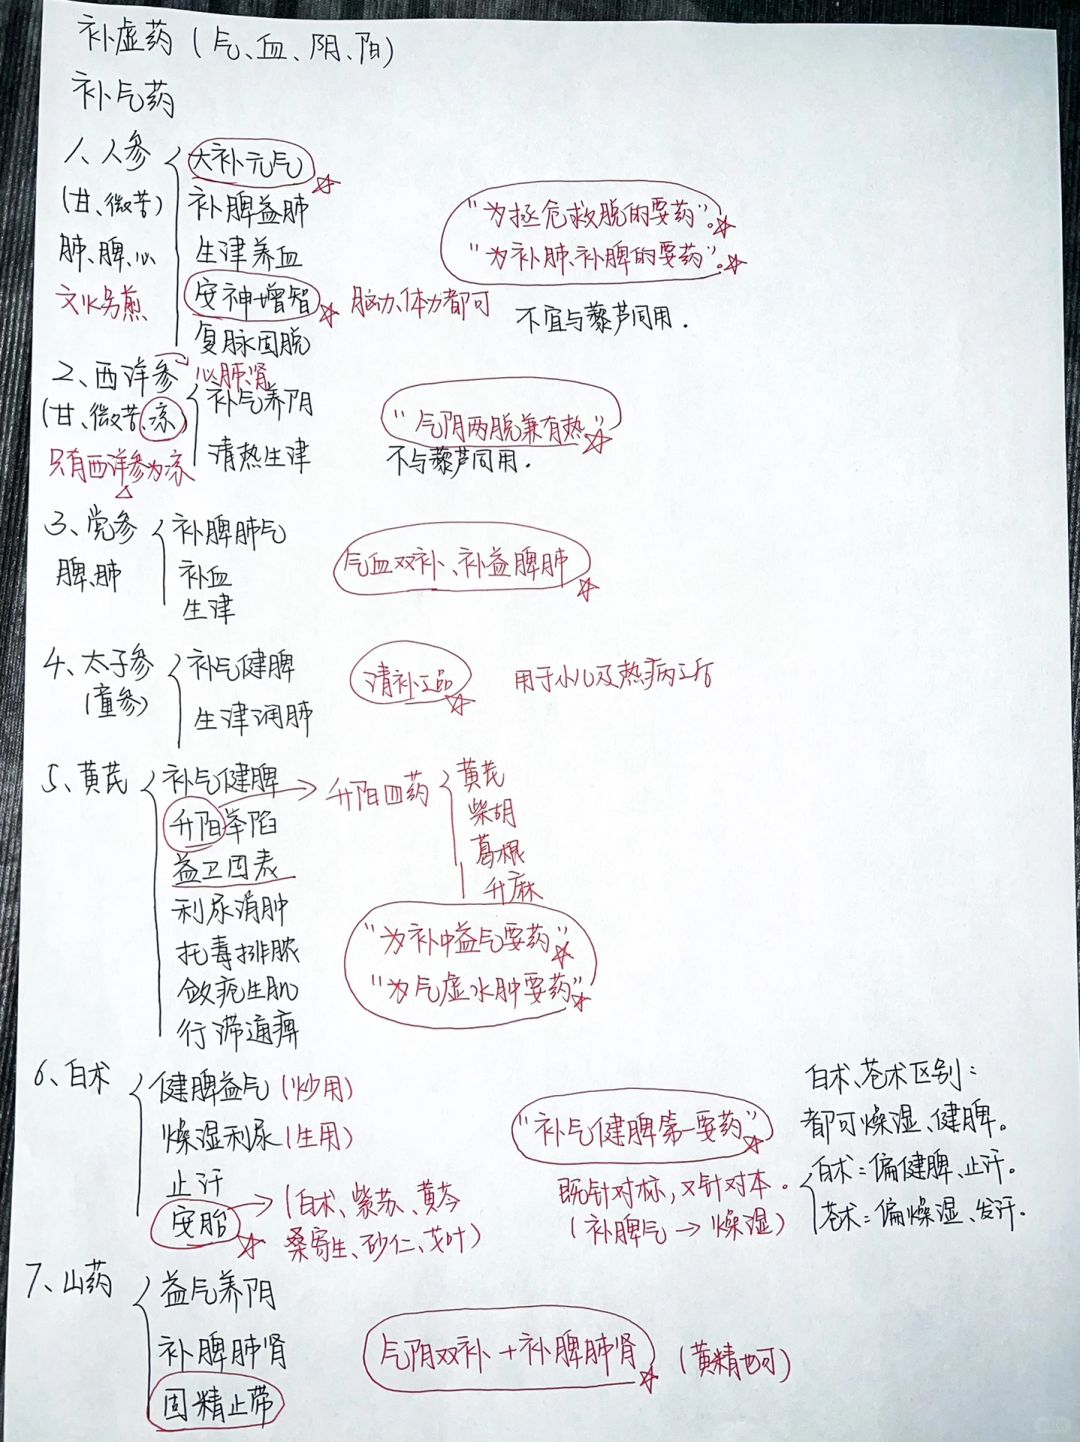 补虚药(气、血、阴、阳)
补气药
1、人参 大补元气
(甘、微苦) 补脾益肺
肺、脾、心 生津养血
文火另煎 安神增智 脑力、体力都可
复脉固脱
"为拯危救脱的要药"。
"为补肺、补脾的要药"。
不宜与藜芦同用.
2、西洋参 心肺肾
(甘、微苦、凉) 补气养阴
只有西洋参为凉 清热生津
"气阴两脱兼有热"
不与藜芦同用.
3、党参 补脾肺气
脾、肺 补血
生津
气血双补、补益脾肺
4、太子参 补气健脾
(童参) 生津润肺
清补之品 用于小儿及热病之后
5、黄芪 补气健脾
升阳举陷 → 升阳四药 黄芪
柴胡
葛根
升麻
益卫固表
利尿消肿
托毒排脓
敛疮生肌
行滞通痹
"为补中益气要药"
"为气虚水肿要药"
6、白术 健脾益气(炒用)
燥湿利尿(生用)
止汗
安胎 → (白术、紫苏、黄芩
桑寄生、砂仁、艾叶)
"补气健脾第一要药"
既针对标,又针对本.
(补脾气→燥湿)
白术、苍术区别:
都可燥湿、健脾。
白术:偏健脾、止汗。
苍术:偏燥湿、发汗.
7、山药 益气养阴
补脾肺肾
固精止带
气阴双补+补脾肺肾 (黄精也可)